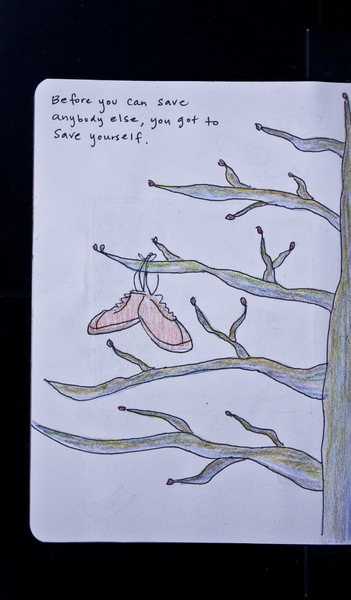 Before you can save
anybody else, you got to
save yourself.